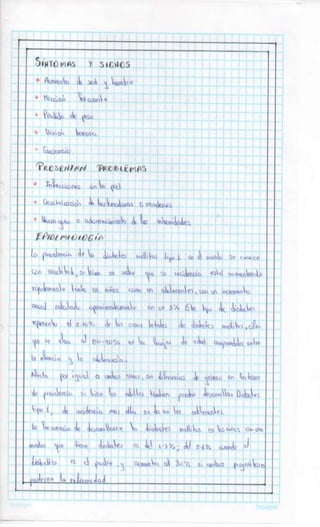 SINTOMAS Y SIGNOS
Aumento de sed y hambre
Micción frecuente
Pérdida de peso
Visión borrosa
Cansancio
PRESENTAN PROBLEMAS
Infecciones en la piel
Cicatrización de las heridas o
Hormigueo o adormecimiento de las extremidades
EPIDEMIOLOGIA
La prevalencia de la diabetes mellitus tipo 1 en el mundo se conoce
con si bien se sabe que su incidencia está aumentando
tanto en niños como en adolescentes, con un incremento
anual calculado aproximadamente en un 3% Este tipo de diabetes
representa el 5-10% de los casos totales de diabetes mellitus, cifra
que se eleva al 80-90% en la de edad comprendida entre
la infancia y la adolescencia.
Afecta por igual a ambos sexos, sin diferencias de género en las tasas
de prevalencia si bien los adultos también pueden desarrollar Diabetes
tipo 1, de incidencia más alta se da en los adolescentes.
La frecuencia de desarrollarse la diabetes mellitus en los niños con una
madre que tiene diabetes es del cuando el
diabético es el padre, y aumenta al 30% si ambos progenitores
padecen la enfermedad